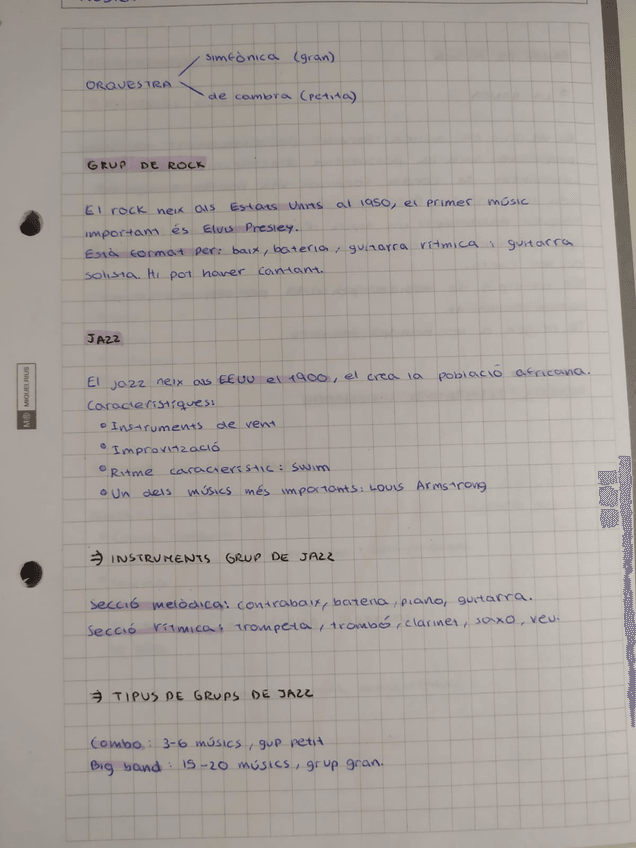 simfònica (gran)
ORQUESTRA
de cambra (petita)
GRUP DE ROCK
El rock neix als Estats Units al 1950, el primer músic
important és Elvis Presley.
Està format per: baix, bateria, guitarra rítmica i guitarra
solista. Hi pot haver cantant.
JAZZ
El jazz neix als EEUU el 1900, el crea la població africana.
Característiques:
• Instruments de vent
• Improvització
• Ritme característic: swim
• Un dels músics més importants: Louis Armstrong
⇒ INSTRUMENTS GRUP DE JAZZ
Secció melòdica: contrabaix, bateria, piano, guitarra.
Secció rítmica: trompeta, trombó, clarinet, saxo, veu.
⇒ TIPUS DE GRUPS DE JAZZ
Combo: 3-6 músics, gup petit
Big band: 15-20 músics, grup gran.
MIQUELRIUS